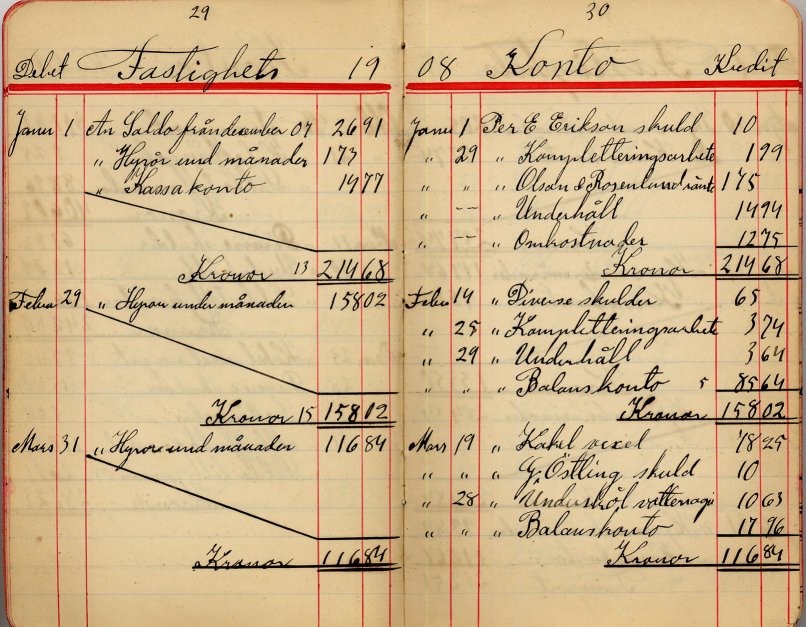 29
Debet Fastighets 19
Janu 1 An Saldo från desember 07 26 91
„ Hyror und månader 173
„ Kassakonto 14 77
Kronor 13 214 68
Febru 29 „ Hyror under månaden 158 02
Kronor 15 158 02
Mars 31 „ Hyror und månader 116 84
Kronor 116 84
30
08 Konto Kredit
Janu 1 Per E Erikson skuld 10
„ 29 „ Kompletteringsarbete 1 99
„ „ „ Olson & Rosenlund ränte 175
„ -- „ Underhåll 14 94
„ -- „ Omkostnader 12 75
Kronor 214 68
Febru 14 „ Diverse skulder 65
„ 25 „ Kompletteringsarbete 3 74
„ 29 „ Underhåll 3 64
„ „ „ Balanskonto 5 85 64
Kronor 158 02
Mars 19 „ Kakel vexel 78 25
„ „ „ G. Östling skuld 10
„ 28 „ 10 63
„ „ „ Balanskonto 17 96
Kronor 116 84